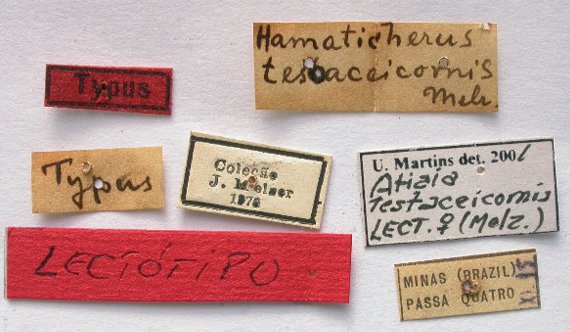 Typus
Hamaticherus
testaceicornis
Melz.
Typus
Coleção
J. Melzer
U. Martins det. 2001
Atizia
testaceicornis
LECT. ♀ (Melz.)
LECTÓTIPO
MINAS (BRAZIL)
PASSA QUATRO
XI.15